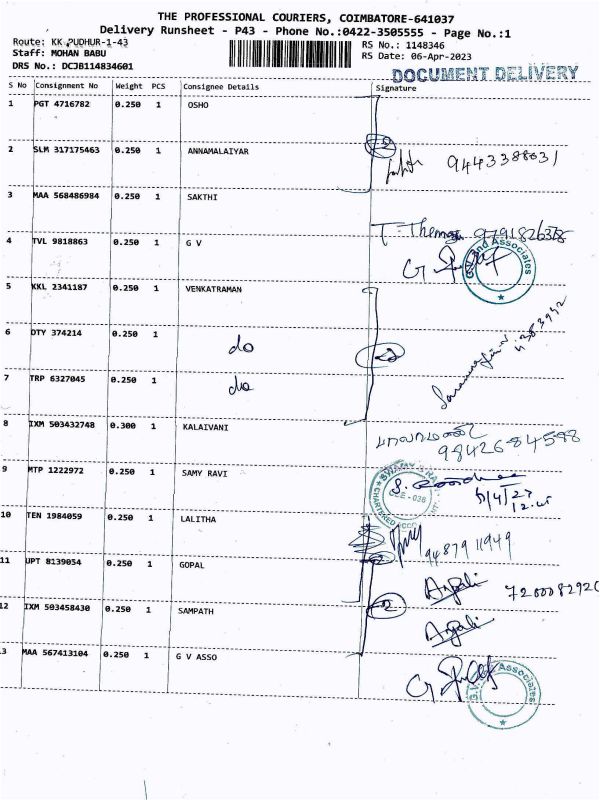 THE PROFESSIONAL COURIERS, COIMBATORE-641037
Delivery Runsheet - P43 - Phone No.:0422-3505555 - Page No.:1
Route: KK PUDHUR-1-43 RS No.: 1148346
Staff: MOHAN BABU RS Date: 06-Apr-2023
DRS No.: DCJB114834601 DOCUMENT DELIVERY
S No Consignment No Weight PCS Consignee Details Signature
1 PGT 4716782 0.250 1 OSHO
2 SLM 317175463 0.250 1 ANNAMALAIYAR
9443388031
3 MAA 568486984 0.250 1 SAKTHI
4 TVL 9818863 0.250 1 G V
G.V. and Associates
5 KKL 2341187 0.250 1 VENKATRAMAN
6 DTY 374214 0.250 1 do
7 TRP 6327045 0.250 1 do
8 IXM 503432748 0.300 1 KALAIVANI
9842684598
9 MTP 1222972 0.250 1 SAMY RAVI
CHARTERED
10 TEN 1984059 0.250 1 LALITHA
9487911949
11 UPT 8139054 0.250 1 GOPAL
Anjali 720008292
12 IXM 503458430 0.250 1 SAMPATH
Anjali
13 MAA 567413104 0.250 1 G V ASSO
G.V. and Associates